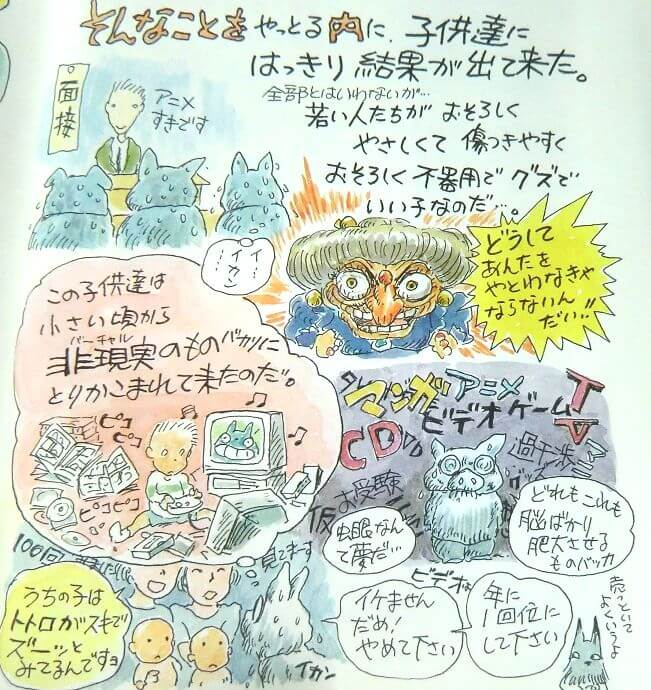 そんなことをやっとる内に、子供達に
はっきり結果が出て来た。
全部とはいわないが…
若い人たちが おそろしく
やさしくて 傷つきやすく
おそろしく 不器用で グズで
いい子なのだ…。
面接
アニメ
すきです
どうして
あんたを
やとわなきゃ
ならないん
だい!!
イー
イカン
この子供達は
小さい頃から
バーチャル
非現実のものバッカリに
とりかこまれて来たのだ。
ピコ
ピコ
ピコピコ
マンガ アニメ TV
ビデオ ゲーム
CD
過干渉
お受験
仮
想
虫眼なん
て夢だ…
どれもこれも
脳ばかり
肥大させる
ものバッカ
100回
見てます
うちの子は
トトロがスキで
ズーッと
みてるんですョ
イカン
イケません
だめ!
やめて下さい
ビデオは
年に
1回位に
して下さい
売っといて
よくいうよ